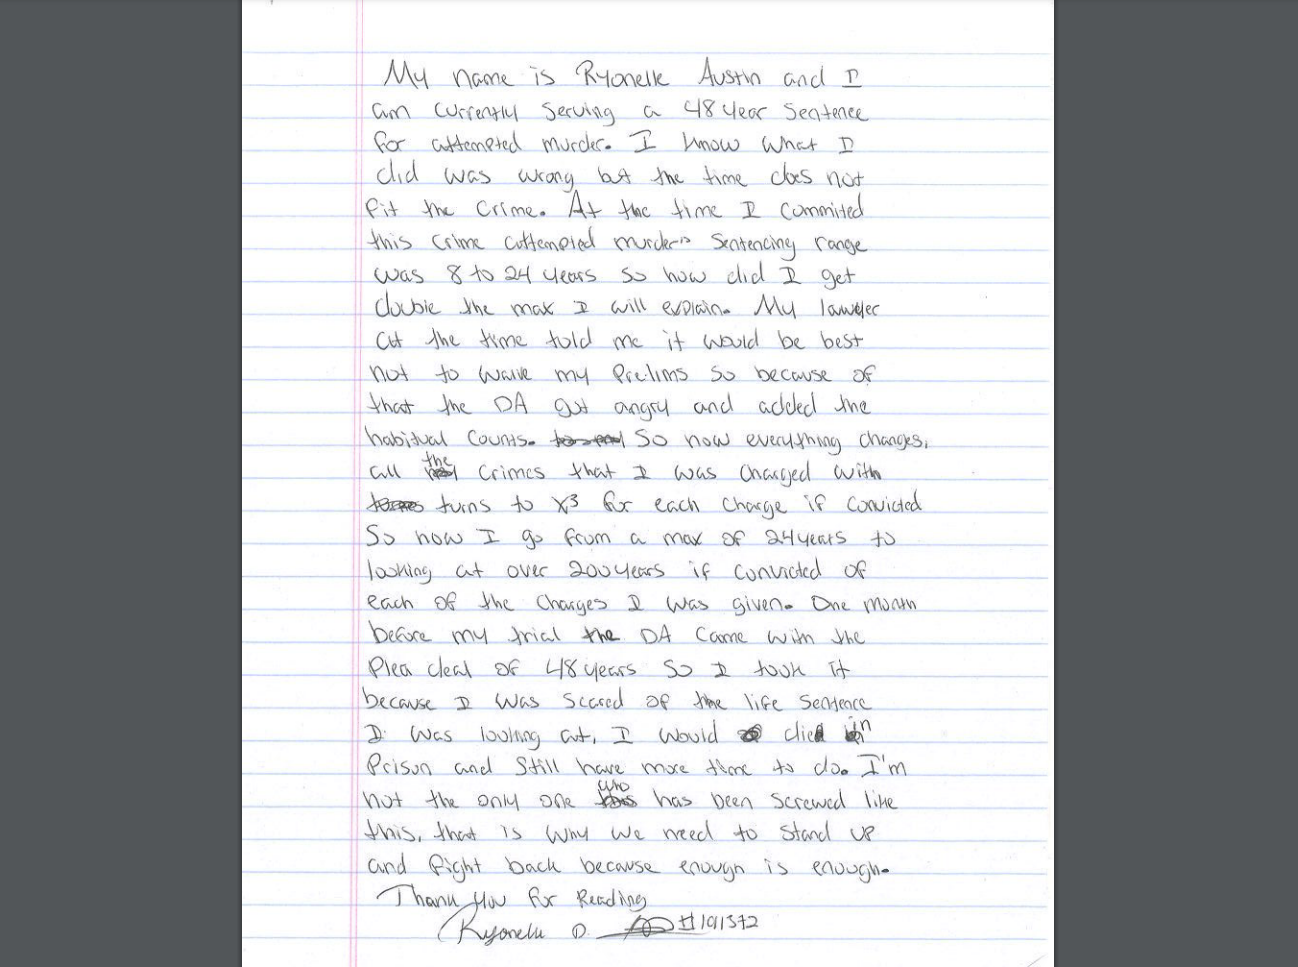 My name is Ryonelle Austin and I
am currently serving a 48 year Sentence
for attempted murder. I know what I
did was wrong but the time does not
fit the crime. At the time I commited
this crime attempted murder's Sentencing range
was 8 to 24 years so how did I get
double the max I will explain. My lawyer
at the time told me it would be best
not to waive my Prelims so because of
that the DA got angry and added the
habitual counts. So now everything changes,
all the crimes that I was charged with
turns to x3 for each charge if convicted
So now I go from a max of 24 years to
looking at over 200 years if convicted of
each of the charges I was given. One month
before my trial the DA came with the
Plea deal of 48 years so I took it
because I was scared of the life Sentence
I was looking at, I would die in
Prison and Still have more time to do. I'm
not the only one who has been screwed like
this, that is why we need to stand up
and fight back because enough is enough.
Thank you for Reading
Ryonelle D. #191372